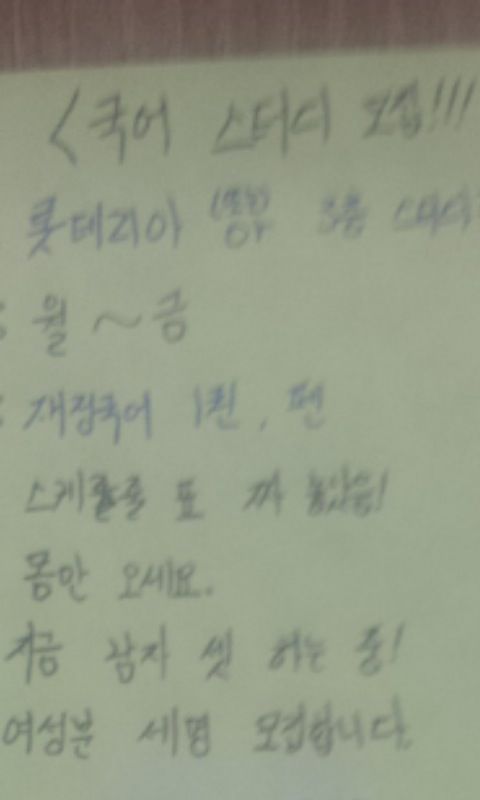 <국어 스터디 모집!!!
롯데리아 3층 스터디
: 월 ~ 금
: 재정국어 1권, 펜
스케쥴 표 짜 놓았음!
몸만 오세요.
지금 감자 씻 하는 중!
여성분 세명 모집합니다.